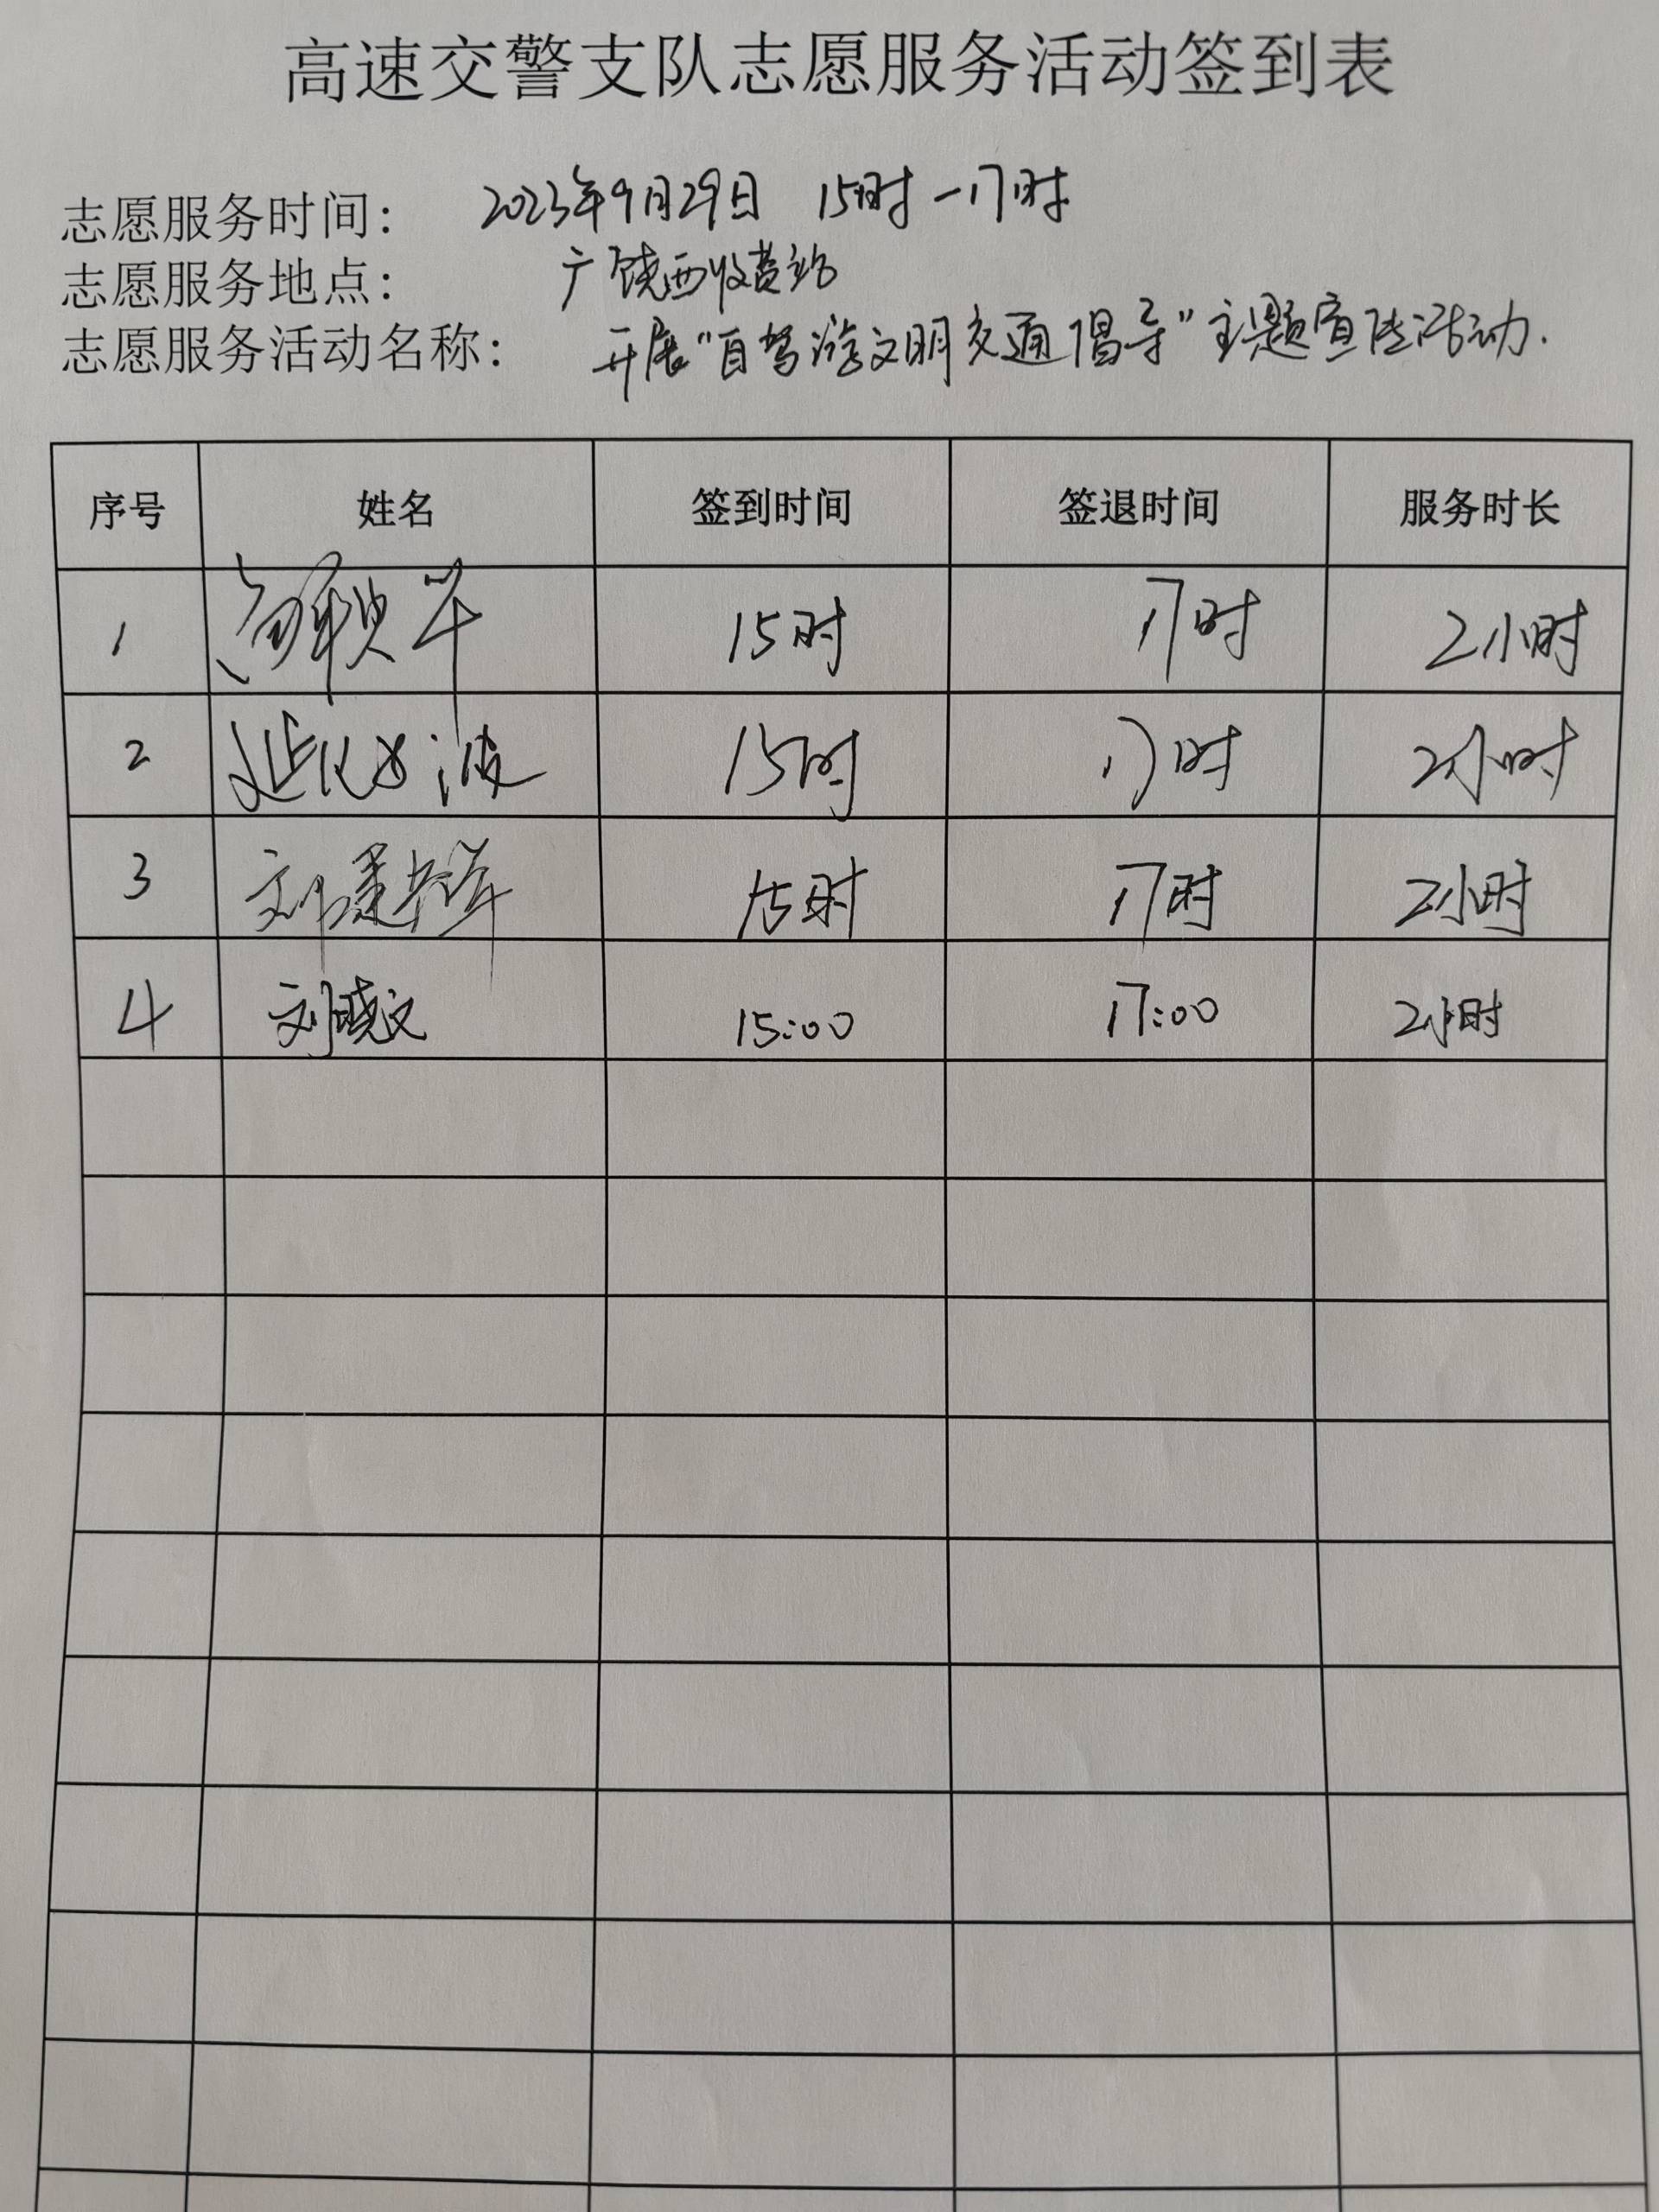 高速交警支队志愿服务活动签到表
志愿服务时间： 2023年9月29日 15时-17时
志愿服务地点： 广饶西收费站
志愿服务活动名称： 开展"自驾游文明交通倡导"主题宣传活动.
序号 姓名 签到时间 签退时间 服务时长
1 15时 17时 2小时
2 15时 17时 2小时
3 刘 15时 17时 2小时
4 刘晓文 15:00 17:00 2小时